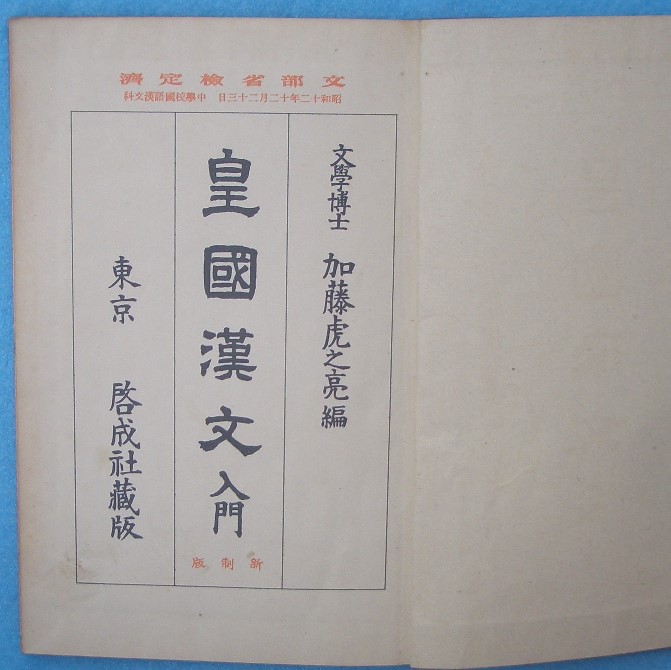 文部省檢定濟
昭和十二年十二月二十三日 中學校國語漢文科
文學博士 加藤虎之亮編
皇國漢文入門
新制版
東京 啓成社藏版